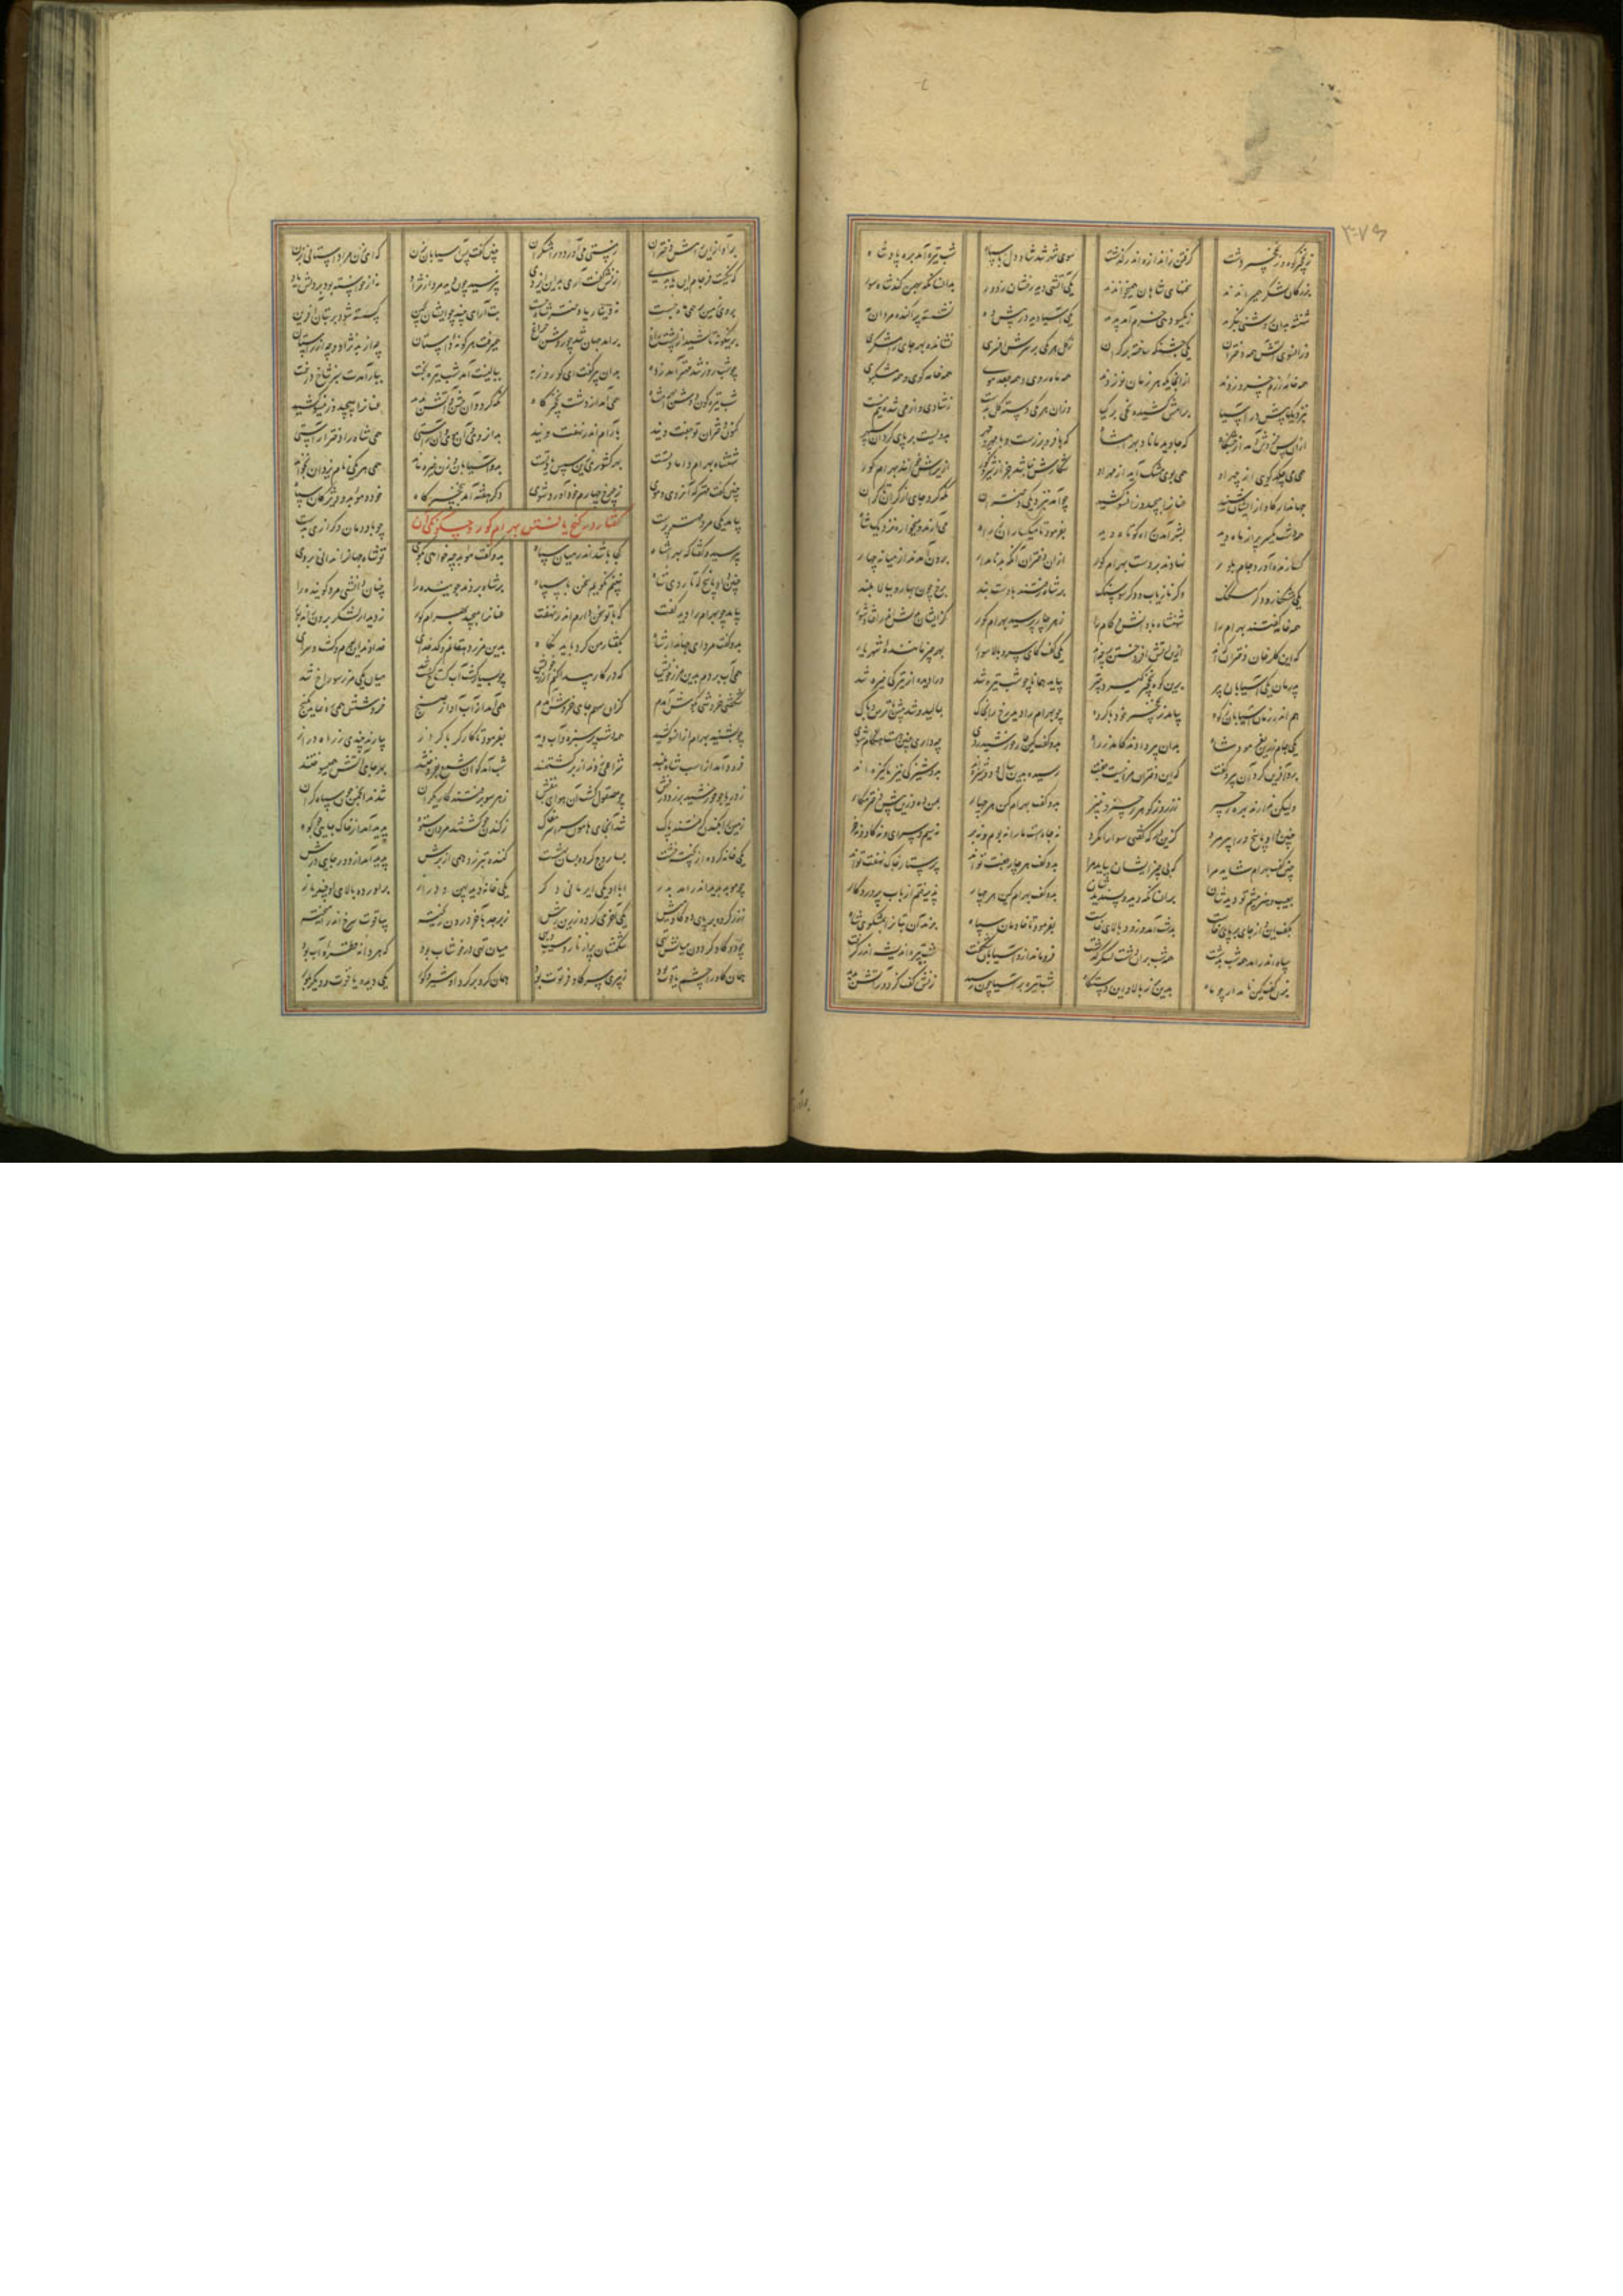 ز نخچیر کوه و ز نخچیر دشت گرفتن ز اندازه اندر گذشت سوی شهر شد شاد دل با سپاه شب تیره آمد بره پادشاه
بزرگان لشکر همی راندند سخنهای شاهان همی خواندند یکی آتشی دید رفشان ز دور بدانسانکه بهمن کند شاه سور
شهنشه بدان روشنی بنگرید ز یکسو دهی خرم آمد پدید یکی آسیا دید در پیش ده نشسته پراکنده مردان مه
وزان سوی آتش همه دختران یکی جشنگه ساخته بر کران ز گل هر یکی بر سرش افسری نشانده بهر جای رامشگری
همه چامه رزم خسرو زدند ازان جایگه هر زمان نو زدند همه ماه روی و همه جعد موی همه چامه گوی و همه مشکبوی
بنزدیک پیش در آسیا برامش کشیده نخی بر گیا وزان هر یکی دسته گل بدست ز شادی و از می شده نیم مست
ازان پس خروش آمد از جشنگاه که جاوید ماناد بهرامشاه که با فر و برزست و با مهر و چهر بدویست بر پای گردان سپهر
همی می چکد گویی از چهر اوی همی بوی مشک آید از مهر اوی شکارش نباشد جز از شیر و گور ازیراش خوانند بهرام گور
جهاندار کاواز ایشان شنید عنانرا بپیچید و زانسو کشید چو آمد بنزدیکی دختران نگه کرد جای از کران تا کران
همه دشت یکسر پر از ماه دید بشهر آمدن راه کوتاه دید بفرمود تا میگساران ز راه می آرند و میخواره نزدیک شاه
گسارنده آورد جام بلور نهادند بر دست بهرام گور ازان دختران آنکه بد نامدار برون آمدند از میانه چهار
یکی مشکناز و دگر سیسنک دگر نازیاب و دگر سوسنک بر شاه رفتند با دستبند برخ چون بهار و ببالا بلند
یکی چامه گفتند بهرام را شهنشاه با دانش و کام را ز هر چار پرسید بهرام گور کزیشان بدلش اندر افتاد شور
که ای گلرخان دختران که اید وزین آتش افروختن بر چه اید یکی گفت کای سرو بالا سوار بهر چیز مانندهٔ شهریار
پدرمان یکی آسیابان پیر برین کوه نخچیر گیرد بتیر بیاید همانا چو شب تیره شد ورا دیده از تیرگی خیره شد
هم اندر زمان آسیابان ز کوه بیامد ز نخچیر خود با گروه چو بهرام را دید رخ را بخاک بمالید و شد پیش با ترس و باک
یکی جام زرین بفرمود شاه بدان پیر دادند کامد ز راه بدو گفت کین چار خورشید روی چه داری چو هستند هنگام شوی
برو آفرین کرد آن پیر و گفت که این دختران مرا نیست جفت رسیده بدین سال دوشیزه اند بدوشیزگی نیز پاکیزه اند
ولیکن ندارند بهره ز چیز نه زر و نه گوهر نه چیزی بنیز بدو گفت بهرام کین هر چهار بمن ده وزین بیش دختر مکار
چنین داد پاسخ ورا پیر مرد کزین در که گفتی سوارا مگرد نه جا هست ما را نه بوم و نه بر نه سیم و سرای و نه گاو و نه خر
چنین گفت بهرام شاید مرا که بی چیز ایشان بباید مرا بدو گفت هر چار جفت تواند پرستار خاک نهفت تواند
بعیب و هنر چشم تو دیدشان بدانسانکه دیدی پسندیدشان بدو گفت بهرام کین هر چهار پذیرفتم از پاک پروردگار
بگفت این و از جای بر پای خاست بدشت اندر آوای بالای خاست بفرمود تا خادمان سپاه برند آن بتان را بمشکوی شاه
سپاه اندر آمد همه شب بدشت همه شب بران دشت لشکر گذشت فروماند ازان آسیابان شگفت شب تیره اندیشه اندر گرفت
بزن گفت کین نامدار چو ماه بدین برز بالا و این دستگاه شب تیره بر آسیا چون رسید زنش گفت کز دور آتش بدید
بر آواز این رامش دختران ز مستی می آورد و رامشگران چنین گفت پس آسیابان بزن که ای زن مرا داستانی بزن
که نیکیست فرجام این یا بدی زنش گفت کاری بود ایزدی نپرسید چون دید مرد از نژاد نه از خواسته بود بر دلش یاد
بروی زمین بر همی ماه جست نه دینار با دختر شاه جست بت آرای بیند چو ایشان بچین گسسته شود بر بتان آفرین
برینگونه تا شید از پشت زاغ برآمد جهان شد چو روشن چراغ همی رفت هر گونه داستان چه از بد نژاد و چه از راستان
چو شب روز شد مهتر آمد ز ده بدان پیر گفت ای گو روزبه ببالینت آمد شب تیره بخت ببار آمدت سبز شاخ درخت
شب تیره گون دوش بهرامشاه همی آمد از دشت نخچیرگاه نگه کرد و آن جشن و آتش بدید عنانرا بپیچید و زینسو کشید
کنون دختران تو جفت ویند بآرام اندر نهفت ویند بدان روی و آن موی و آن راستی همی شاه را دختر آراستی
شهنشاه بهرام داماد تست بهر کشوری زین سپس یاد تست
چنین گفت مهتر که آن روی و موی ز چرخ چهارم خور آورد شوی دگر هفته آمد بنخچیرگاه خود و موبد و ویژگان سپاه
گفتار در گنج یافتن بهرام گور و چگونگی آن
بیامد یکی مرد مهتر پرست چو باد دمان و گرازی بدست
بپرسید و گفتا که بهرامشاه کجا باشد اندر میان سپاه بدو گفت موبد چه خواهی بگوی تو شاه جهانرا ندانی بروی
چنین داد پاسخ که تا روی شاه نبینم نگویم سخن با سپاه بر شاه بردند جوینده را چنان دانشی مرد گوینده را
بیامد چو بهرام را دید گفت که با تو سخن دارم اندر نهفت عنانرا بپیچید بهرام گور ز دیدار لشکر برون راند دور
بدو گفت مرد ای جهاندار شاه بگفتار من کرد باید نگاه بدین مرز دهقانم و کدخدای خداوند این بوم و کشت و سرای
همی آب بردم بدین مرز خویش که در کار پیدا کنم ارز خویش چو بسیار گشت آب گستاخ شد میان یکی مرز سوراخ شد
شگفتی خروشی بگوش آمدم کزان بیم جای خروش آمدم همی آمد از آب آواز سنج خروشش همی ره نماید بگنج
چو بشنید بهرام ازانسو کشید همه دشت پر سبزه و آب دید بفرمود تا کارگر با گراز بیارند چندی ز راه دراز
فرود آمد از اسب شاه بلند شراعی زدند از بر کشتمند شب آمد گوان شمع افروختند بهر جای آتش همی سوختند
ز دریا چو خورشید بر زد درفش چو مصقول گشت آن هوای بنفش ز هر سو برفتند کاریگران شدند انجمن چون سپاه گران
زمین را بکندن گرفتند پاک شد آنجای هامون سراسر مغاک ز کندن چو گشتند مردان ستوه پدید آمد از خاک جایی چو کوه
یکی خانه کرده از پخته خشت بساروج کرده بسان بهشت کننده تبر زد همی از برش پدید آمد از دور جای درش
چو موبد بدید اندر آمد بدر ابا او یکی ایرمانی دگر یکی خانه دید پهن و دراز برآورده بالای او چند باز
ز زر کرده بر پای دو گاومیش یکی آخری کرده زرینش پیش زبرجد بآخر درون ریخته بیاقوت سرخ اندر آمیخته
چو دو گاو گردون میانش تهی شکمشان پر از نار و سیب و بهی میان بهی در خوشاب بود که هر دانهٔ قطرهٔ آب بود
همان گاو را چشم یاقوت بود ز پیری سر گاو فرتوت بود همان گرد بر گرد او شیر و گور یکی دیده یاقوت و دیگر بلور